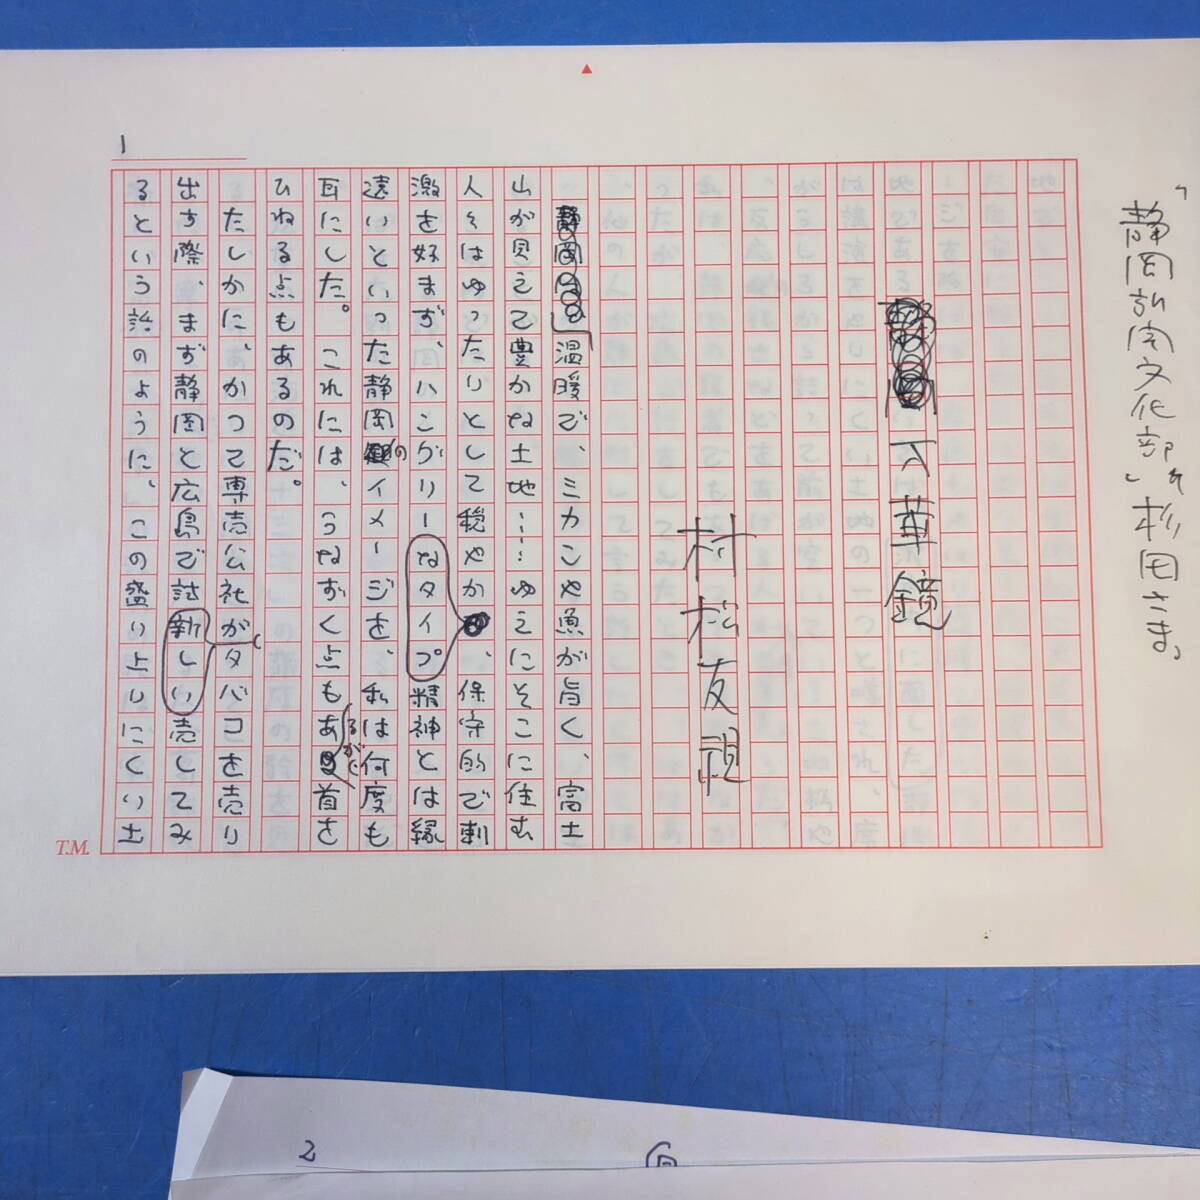 「静岡新聞文化部」杉田さま。
万華鏡
村松友視
温暖で、ミカンや魚が旨く、富士
山が見えて豊かな土地……ゆえにそこに住む
人々はゆったりとして穏やか、保守的で刺
激を好まず、ハングリーなタイプ精神とは縁
遠いといった静岡のイメージを、私は何度も
耳にした。これには、うなずく点もあるが、首を
ひねる点もあるのだ。
たしかに、かつて専売公社がタバコを売り
出す際、まず静岡と広島で試新しい売してみ
るという話のように、この盛り上りにくい土
1
T.M.
2